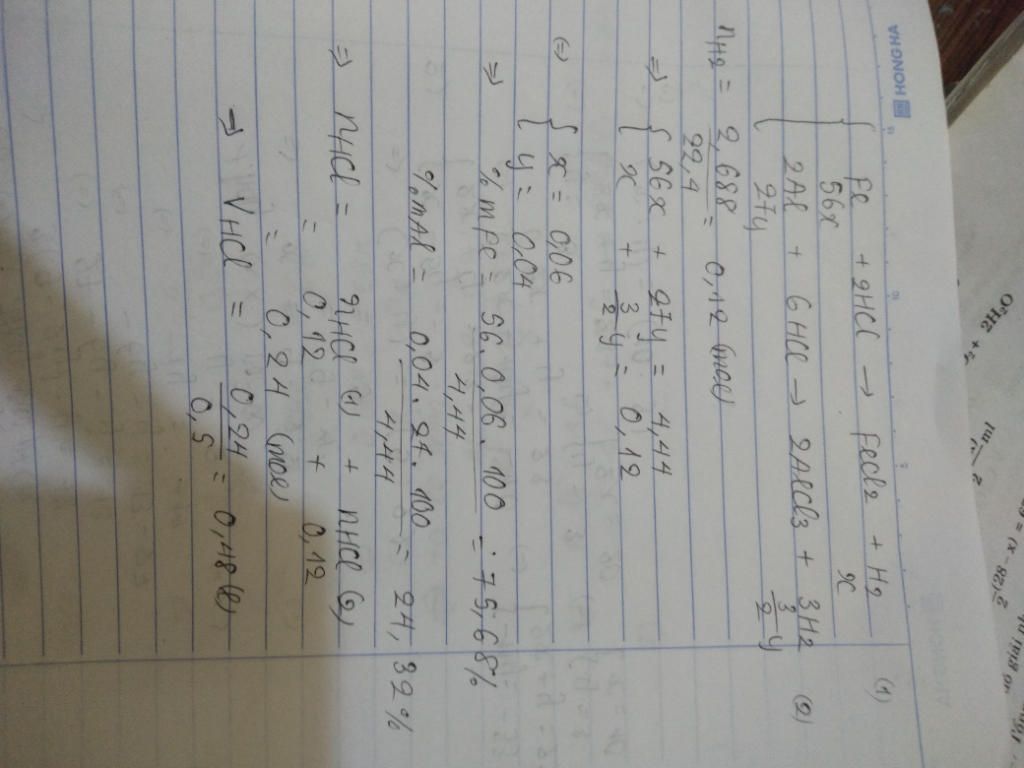 HONG HA
Fe + 2HCl → FeCl2 + H2 (1)
56x x
2Al + 6HCl → 2AlCl3 + 3H2 (2)
27y 3/2 y
nH2 = 2,688/22,4 = 0,12 (mol)
⇒ { 56x + 27y = 4,44
x + 3/2 y = 0,12
⇔ { x = 0,06
y = 0,04
⇒ % mFe = 56.0,06.100/4,44 = 75,68%
% mAl = 0,04.27.100/4,44 = 24,32%
⇒ nHCl = nHCl (1) + nHCl (2)
= 0,12 + 0,12
= 0,24 (mol)
→ VHCl = 0,24/0,5 = 0,48 (l)
2H2O
ml